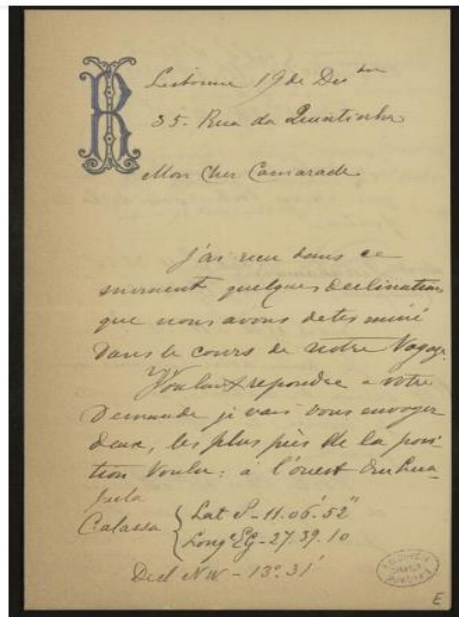 R
Lisbonne 19 de Dec bre
35. Rua da Quintinha
Mon Cher Camarade
J'ai reçu dans ce
moment quelques declinations
que nous avons determiné
dans le cours de notre Voyage.
Voulant repondre a votre
Demande je vais vous envoyer
deux, les plus près de la posi
tion Voulu: à l'ouest du Lua
pula
Calassa { Lat S - 11.06'.52"
Longe EG - 27.39.10
Decl NW - 13°.31'
E